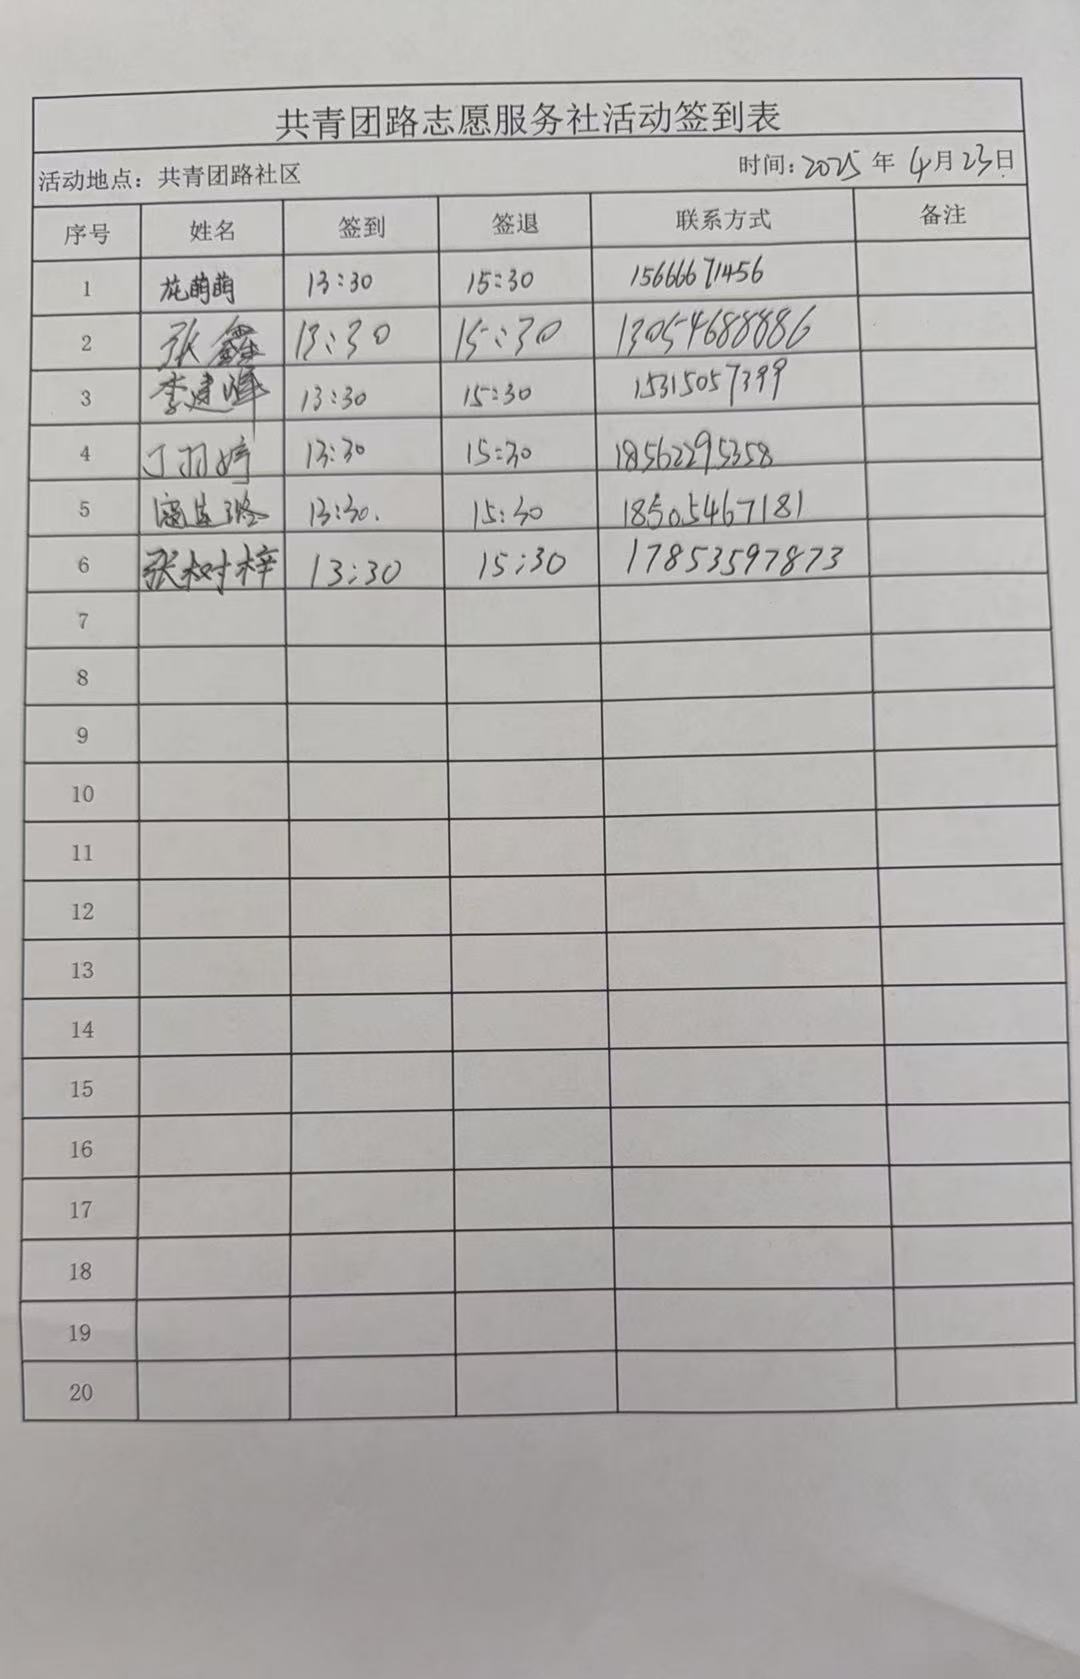 共青团路志愿服务社活动签到表
活动地点：共青团路社区 时间：2025 年 4月23日
序号 姓名 签到 签退 联系方式 备注
1 花萌萌 13:30 15:30 15666671456
2 张鑫 13:30 15:30 13054688886
3 李建晖 13:30 15:30 15315057399
4 丁羽婷 13:30 15:30 18562295358
5 13:30. 15:30 18505467181
6 张树梓 13:30 15:30 17853597873
7
8
9
10
11
12
13
14
15
16
17
18
19
20